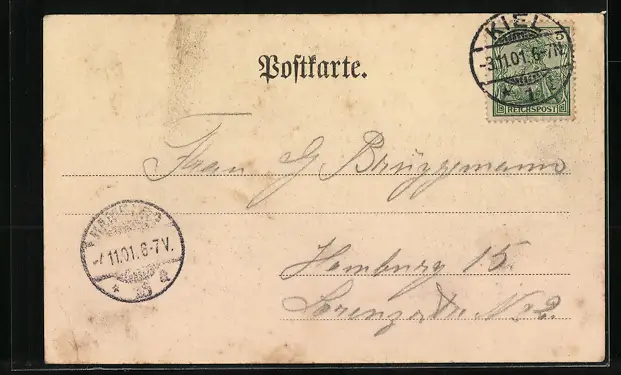 Postkarte.
KIEL
-3.11.01.6-7N.
* 1 f
5
REICHSPOST
Frau G Brüggemann
HAMBURG
-4.11.01.6-7V.
Hamburg 15.
No 2.